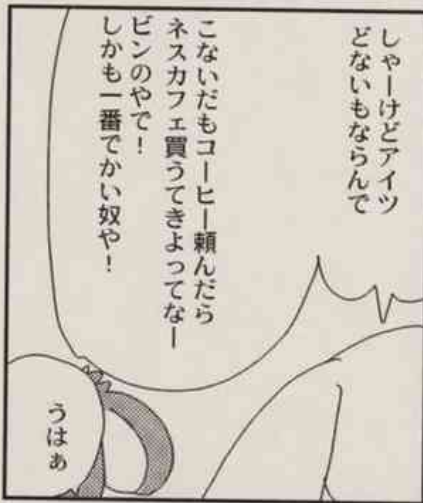 しゃーけどアイツ
どないもならんで
こないだもコーヒー頼んだら
ネスカフェ買うてきよってなー
ビンのやで！
しかも一番でかい奴や！
うはぁ